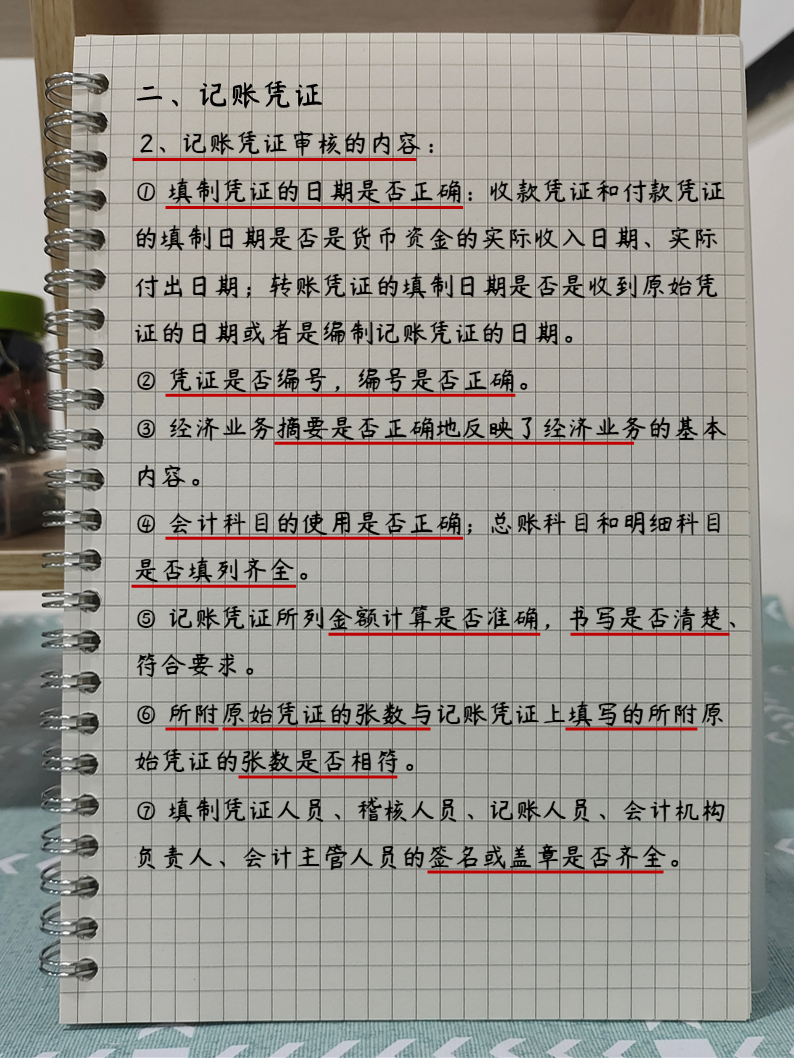 二、记账凭证
2、记账凭证审核的内容：
① 填制凭证的日期是否正确：收款凭证和付款凭证
的填制日期是否是货币资金的实际收入日期、实际
付出日期；转账凭证的填制日期是否是收到原始凭
证的日期或者是编制记账凭证的日期。
② 凭证是否编号，编号是否正确。
③ 经济业务摘要是否正确地反映了经济业务的基本
内容。
④ 会计科目的使用是否正确；总账科目和明细科目
是否填列齐全。
⑤ 记账凭证所列金额计算是否准确，书写是否清楚、
符合要求。
⑥ 所附原始凭证的张数与记账凭证上填写的所附原
始凭证的张数是否相符。
⑦ 填制凭证人员、稽核人员、记账人员、会计机构
负责人、会计主管人员的签名或盖章是否齐全。